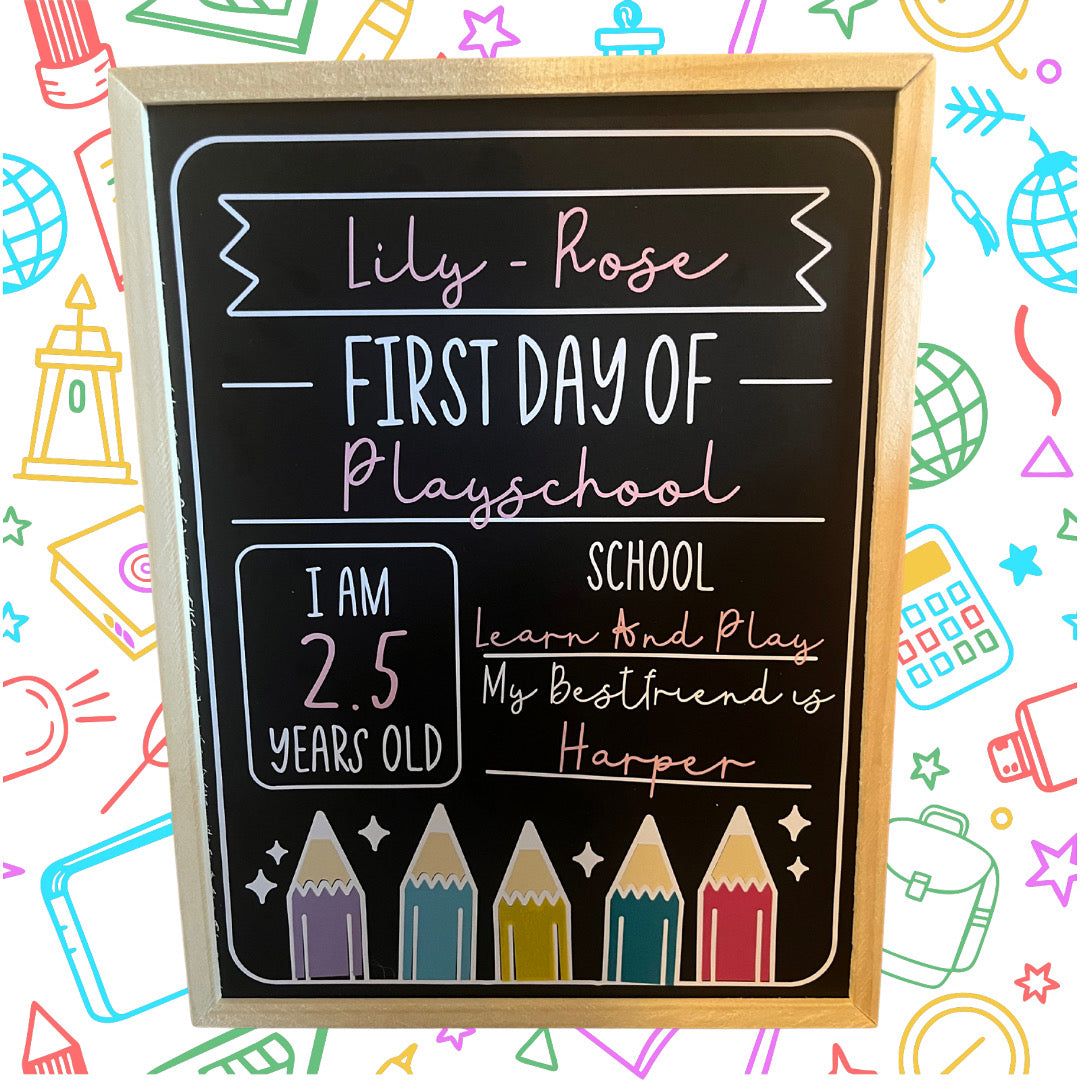 Lily - Rose
FIRST DAY OF
Playschool
I AM
2.5
YEARS OLD
SCHOOL
Learn And Play
My Bestfriend is
Harper